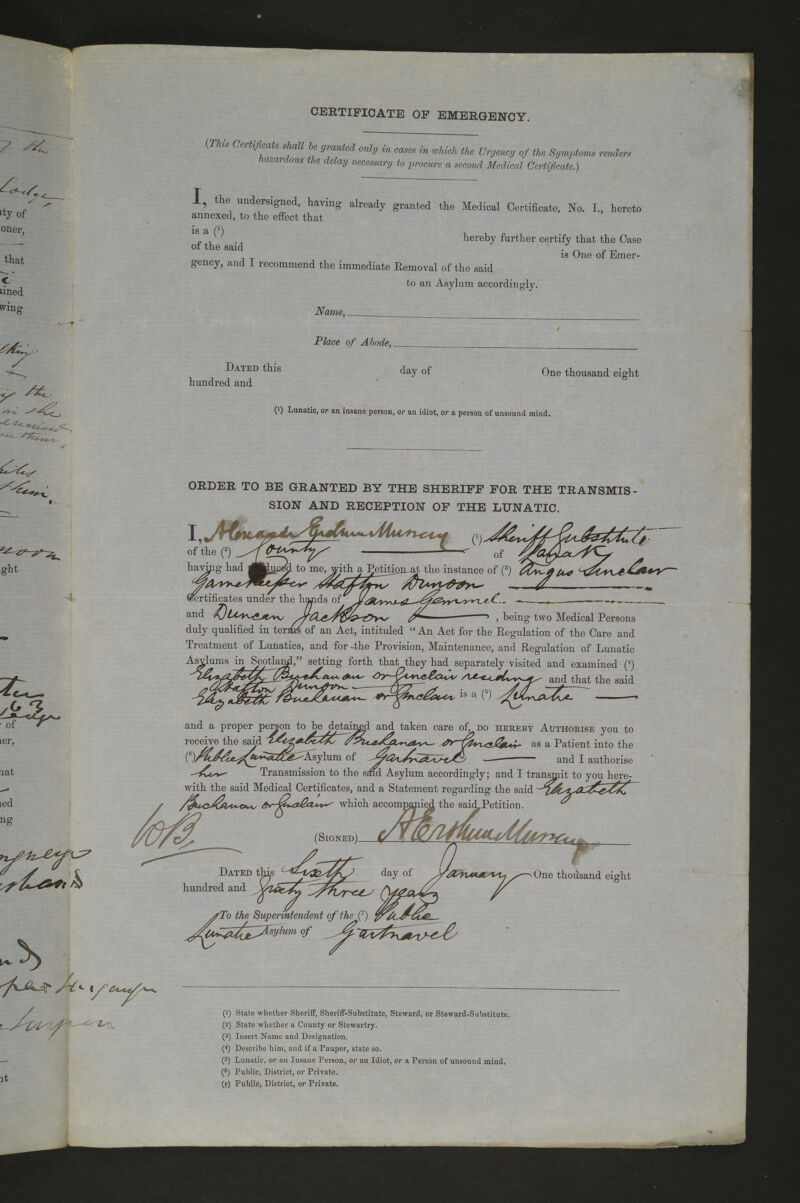 CERTIFICATE OF EMERGENCY.
(This Certificate shall be granted only in cases in which the Urgency of the Symptoms renders
hazardous the delay necessary to procure a second Medical Certificate.)
I, the undersigned, having already granted the Medical Certificate, No. I., hereto
annexed, to the effect that
is a (¹) hereby further certify that the Case
of the said is One of Emer-
gency, and I recommend the immediate Removal of the said
to an Asylum accordingly.
Name,
Place of Abode,
DATED this day of One thousand eight
hundred and
(¹) Lunatic, or an insane person, or an idiot, or a person of unsound mind.
ORDER TO BE GRANTED BY THE SHERIFF FOR THE TRANSMIS-
SION AND RECEPTION OF THE LUNATIC.
I, Alexander Erskine Murray (¹) Sheriff Substitute
of the (²) County of Lanark
having had produced to me, with a Petition at the instance of (³) Angus Sinclair
Gamekeeper Dunoon
Certificates under the hands of James Gemmel
and Duncan Jackson, being two Medical Persons
duly qualified in terms of an Act, intituled "An Act for the Regulation of the Care and
Treatment of Lunatics, and for the Provision, Maintenance, and Regulation of Lunatic
Asylums in Scotland," setting forth that they had separately visited and examined (⁴)
Elizabeth Buchanan or Sinclair residing and that the said
Dunoon
Elizabeth Buchanan or Sinclair is a (⁵) Lunatic
and a proper person to be detained and taken care of, DO HEREBY AUTHORISE you to
receive the said Elizabeth Buchanan or Sinclair as a Patient into the
(⁶) Public Lunatic Asylum of Gartnavel and I authorise
her Transmission to the said Asylum accordingly; and I transmit to you here-
with the said Medical Certificates, and a Statement regarding the said Elizabeth
Buchanan or Sinclair which accompanied the said Petition.
(SIGNED) A Erskine Murray
DATED this Sixth day of January One thousand eight
hundred and Sixty three years
To the Superintendent of the (⁷) Public
Lunatic Asylum of Gartnavel
(¹) State whether Sheriff, Sheriff-Substitute, Steward, or Steward-Substitute.
(²) State whether a County or Stewartry.
(³) Insert Name and Designation.
(⁴) Describe him, and if a Pauper, state so.
(⁵) Lunatic, or an Insane Person, or an Idiot, or a Person of unsound mind.
(⁶) Public, District, or Private.
(⁷) Public, District, or Private.